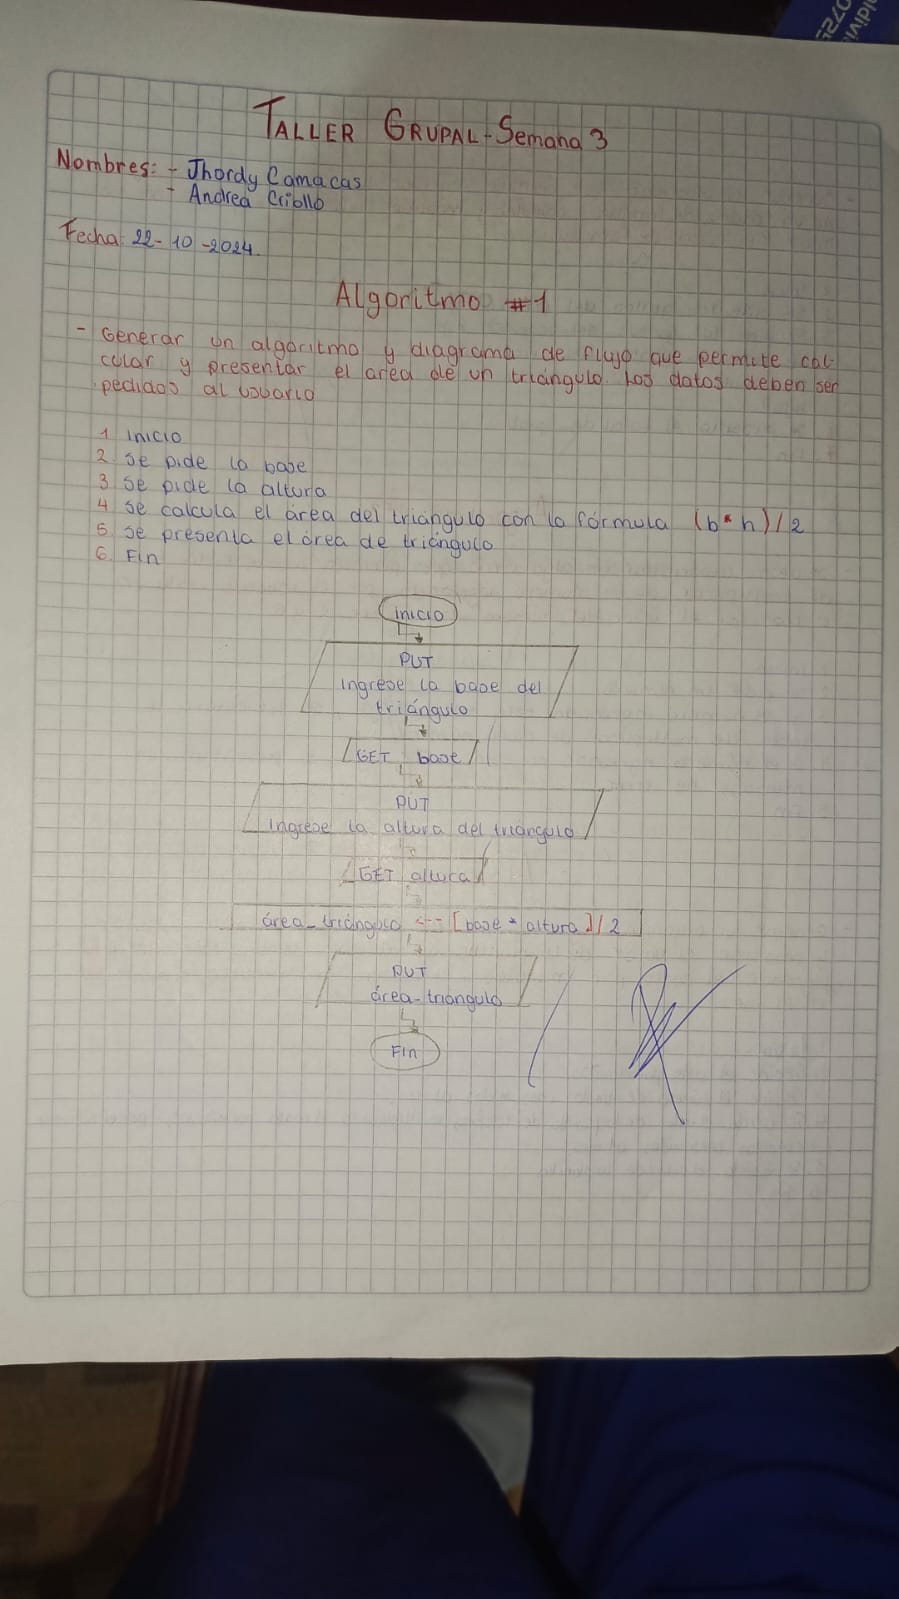 TALLER GRUPAL - Semana 3
Nombres: - Jhordy Camacas
- Andrea Criollo
Fecha: 22-10-2024.
Algoritmo #1
- Generar un algoritmo y diagrama de flujo que permite cal-
cular y presentar el area de un triángulo. Los datos deben ser
pedidos al usuario
1 Inicio
2 Se pide la base
3 Se pide la altura
4 Se calcula el área del triángulo con la fórmula (b*h)/2
5 Se presenta el área de triángulo
6 Fin
inicio
PUT
ingrese la base del
triángulo
GET base
PUT
ingrese la altura del triangulo
GET altura
área_triángulo <-- [base * altura]/2
PUT
área-triangulo
Fin